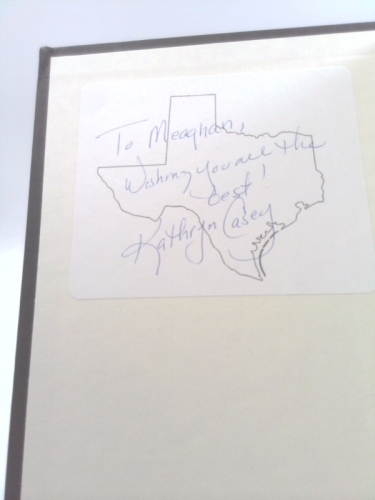 To Meaghan,
Wishing you all the
best!
Kathryn Casey